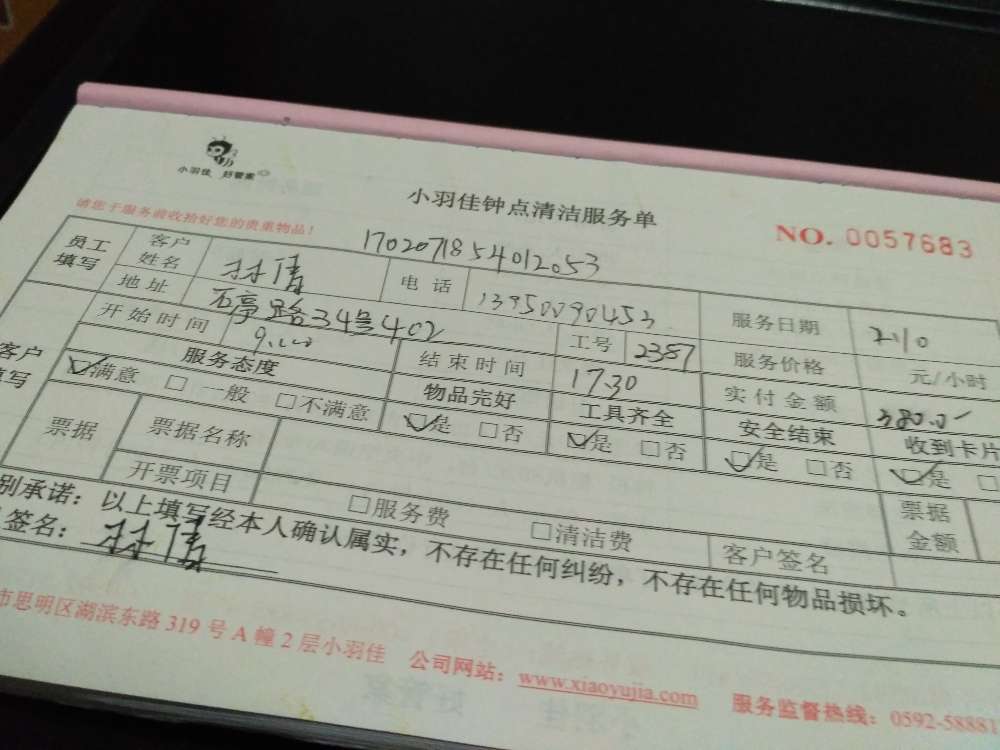 小羽佳 好管家
小羽佳钟点清洁服务单
请您于服务前收拾好您的贵重物品!
NO. 0057683
1702071854012053
员工填写 客户姓名 林倩 电话 13950090453 服务日期 2.10
地址 石亭路34号402 工号 2387 服务价格 元/小时
开始时间 9:00 结束时间 17.30 实付金额 380.0
客户填写 服务态度 物品完好 工具齐全 安全结束 收到卡片
☑满意 □一般 □不满意 ☑是 □否 ☑是 □否 ☑是 □否 ☑是 □
票据 票据名称 票据金额
开票项目 □服务费 □清洁费 客户签名
别承诺:以上填写经本人确认属实,不存在任何纠纷,不存在任何物品损坏。
签名: 林倩
市思明区湖滨东路319号A幢2层小羽佳 公司网站:www.xiaoyujia.com 服务监督热线:0592-58881